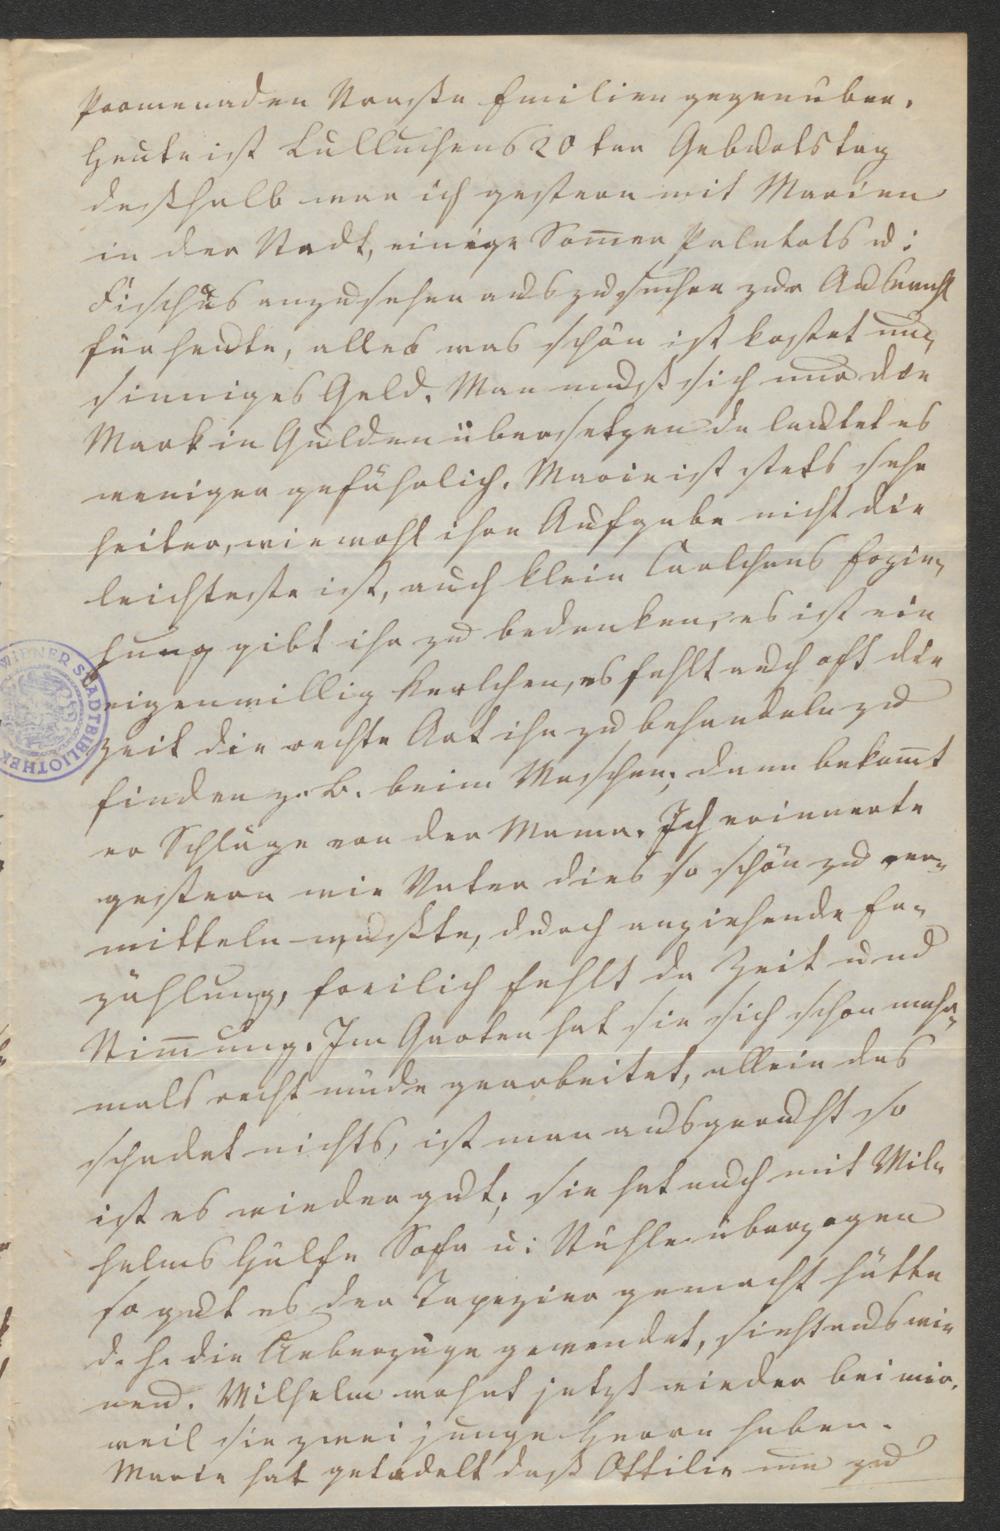 Promenaden Strasse Emilien gegenüber.
Heute ist Lulluchens 20 ter Geburtstag
desshalb war ich gestern mit Marien
in der Stadt, einige Som̄er Paletots u:
Fischüs anzusehen auszusuchen zur Auswahl
für heute, alles was schön ist kostet un¬
sinniges Geld. Man muss sich nur die
Mark in Gulden übersetzen da lautet es
weniger gefährlich. Marie ist stets sehr
heiter, wiewohl ihre Aufgabe nicht die
leichteste ist, auch klein Carlchens Erzie¬
hung gibt ihr zu bedenken, es ist ein
eigenwillig Kerlchen, es fehlt auch oft die
Zeit die rechte Art ihn zu behandeln zu
finden z. B. beim Waschen, dann bekom̄t
er Schläge von der Mama. Ich erinnerte
gestern wie Vater dies so schön zu ver¬
mitteln wusste, durch anziehende Er¬
zählung, freilich fehlt da Zeit und
Stim̄ung. Im Garten hat sie sich schon mehr¬
mals recht müde gearbeitet, allein das
schadet nichts, ist man ausgeruht so
ist es wieder gut, sie hat auch mit Wil¬
helms Hülfe Sofa u: Stühle überzogen
so gut es der Tapezier gemacht hätte
d. h. die Ueberzüge gewendet, sieht aus wie
neu. Wilhelm wohnt jetzt wieder bei mir,
weil sie zwei junge Herrn haben.
Marie hat getadelt dass Ottilie nie zu
WIENER STADTBIBLIOTHEK